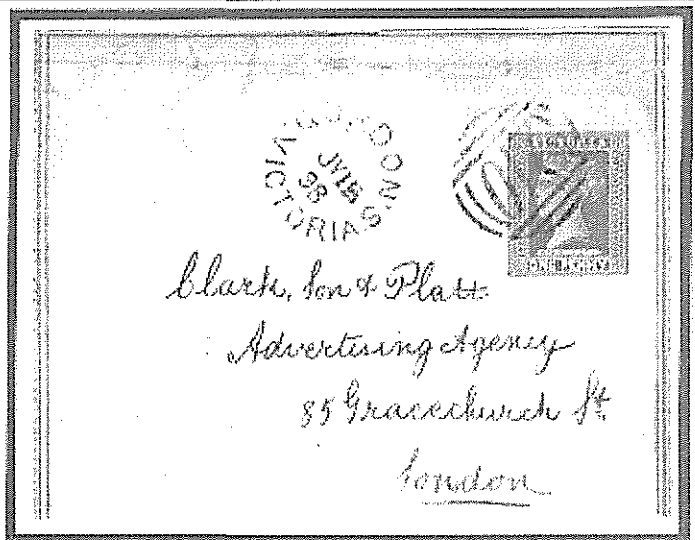 VICTORIA
98
ONE PENNY
Clark, Son & Platt
Advertising Agency
85 Gracechurch St
London